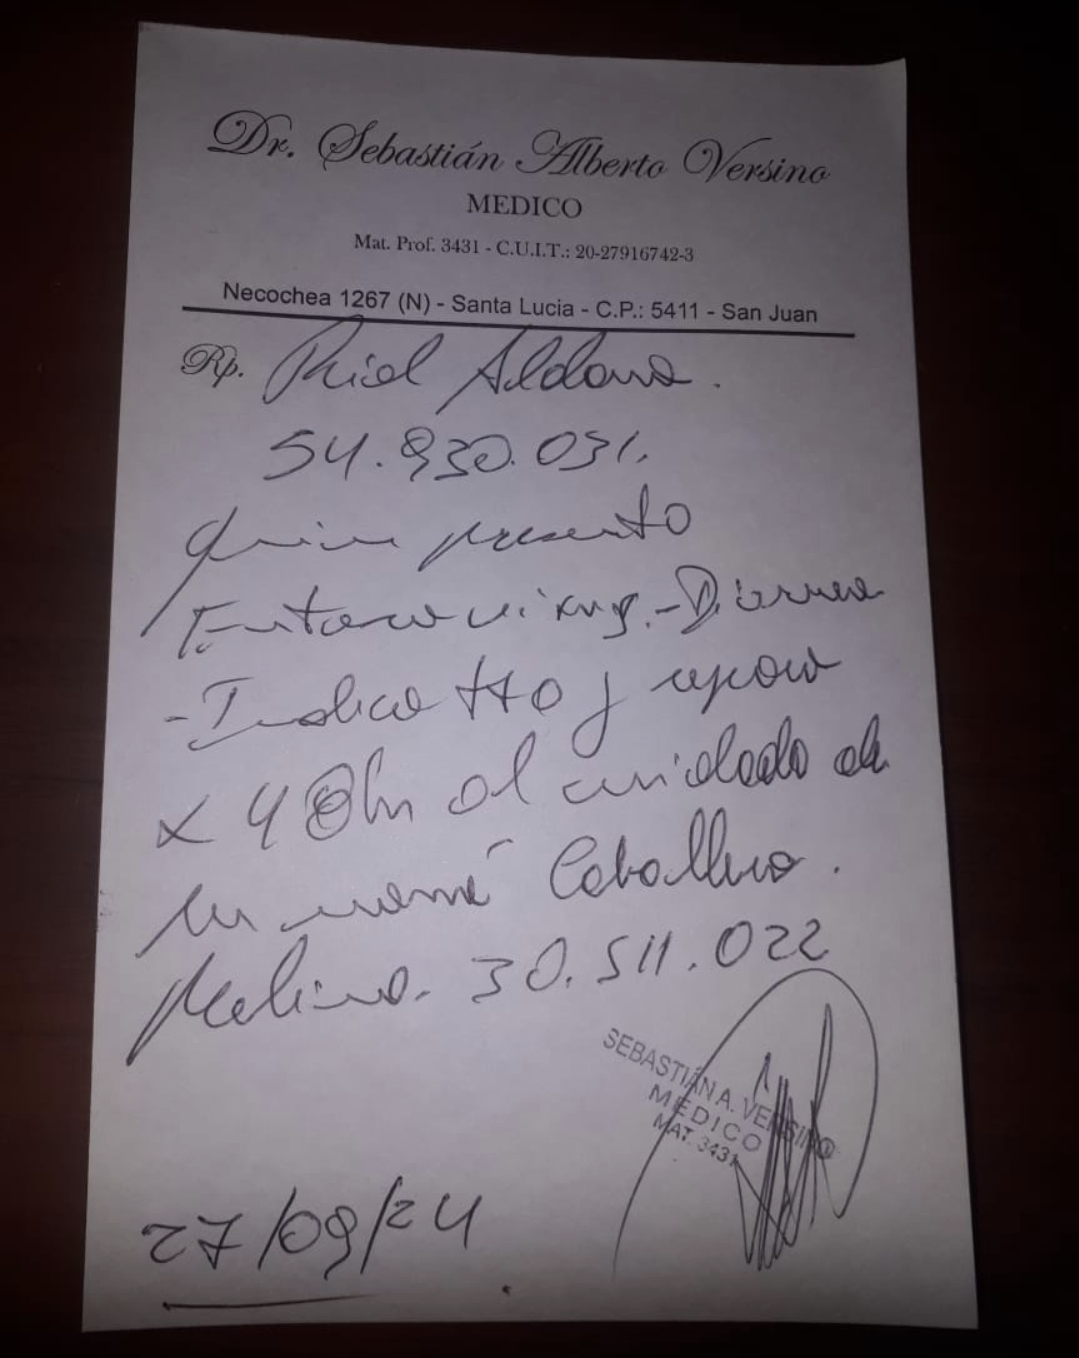 Dr. Sebastián Alberto Versino
MEDICO
Mat. Prof. 3431 - C.U.I.T.: 20-27916742-3
Necochea 1267 (N) - Santa Lucia - C.P.: 5411 - San Juan
Rp. Aldana.
54.930.031.
quien presento
- Diarrea
- Indico tto y reposo
x 48hs al cuidado de
su mamá Caballero.
Melina. 30.511.022
SEBASTIÁN A. VERSINO
MEDICO
MAT. 3431
27/09/24